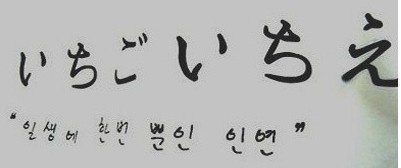 いちごいちえ
"일생에 한번 뿐인 인연"